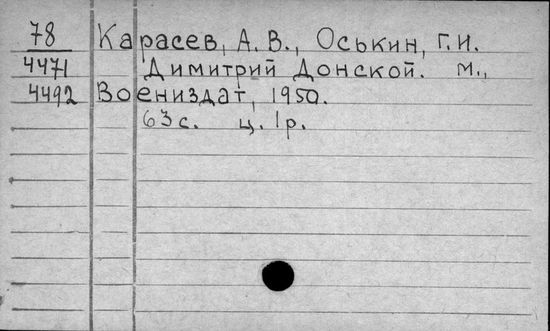 78 Карасев, А. В., Оськин, Г. И.
4471 Димитрий Донской. М.,
4492 Воениздат, 1950.
63 с. ц. 1 р.